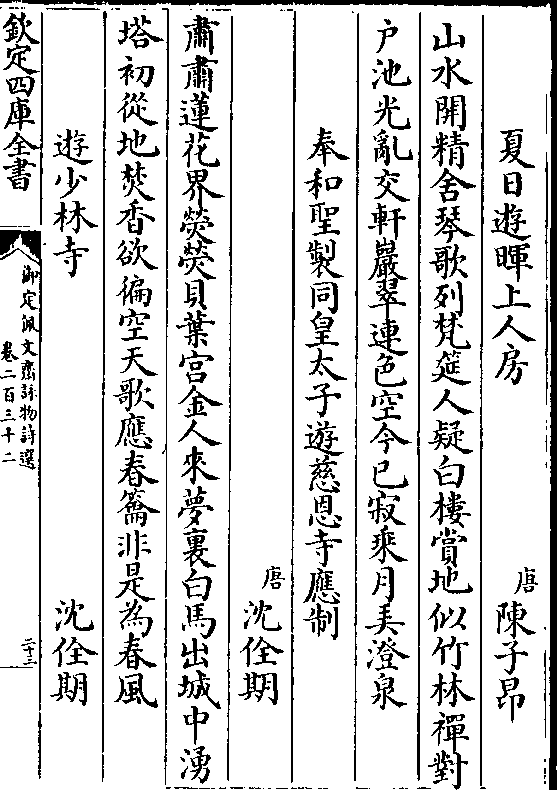 夏日遊暉上人房
唐陳子昂
山水開精舍琴歌列梵筵人疑白樓賞地似竹林禪對
户池光亂交軒巖翠連色空今已寂乘月弄澄泉
奉和聖製同皇太子遊慈恩寺應制
唐沈佺期
肅肅蓮花界熒熒貝葉宫金人來夢裏白馬出城中湧
塔初從地焚香欲徧空天歌應春籥非是為春風
遊少林寺
沈佺期
欽定四庫全書
御定佩文齋詠物詩選
卷二百三十二
二十三